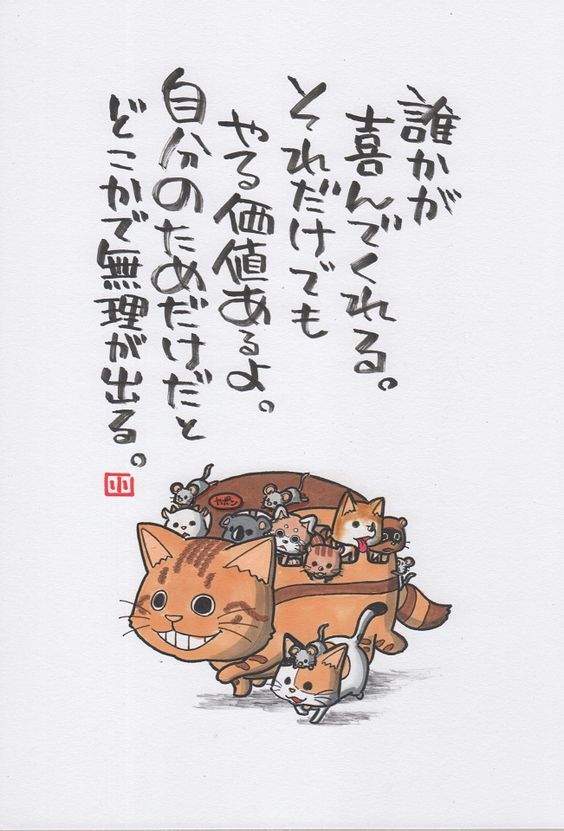 誰かが
喜んでくれる。
それだけでも
やる価値あるよ。
自分のためだけだと
どこかで無理が出る。
小